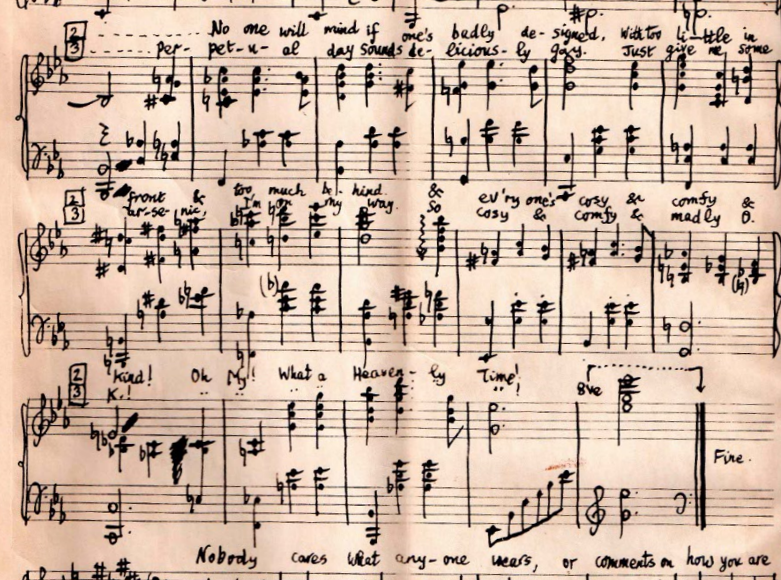 2 No one will mind if one's badly de-signed, With too li-ttle in
3 per-pet-u-al day sounds de-licious-ly gay. Just give me some
2 front & too much be-hind. & ev'ry one's cosy & comfy &
3 ar-se-nic, I'm on my way. So cosy & comfy & madly O.
2 Kind! Oh My! What a Heaven-ly Time!
3 K.!
8ve
Fine.
Nobody cares what any-one wears, or comments on how you are